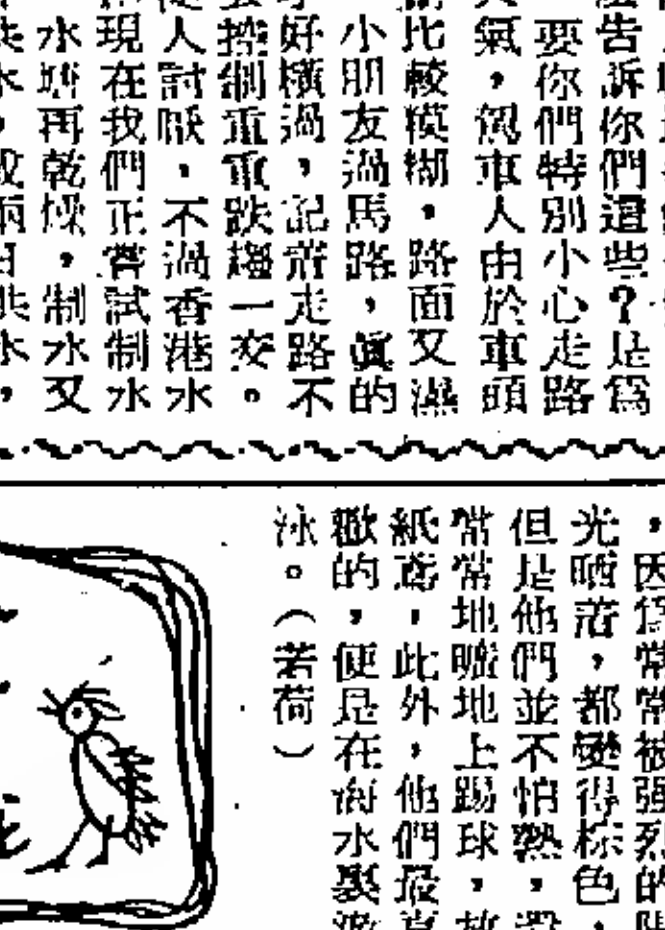 告訴你們這些？是爲
要你們特別小心走路
氣，駕車人由於車頭
比較模糊，路面又濕
小朋友過馬路，眞的
好橫過，記着走路不
控制重重跌趟一交。
人討厭，不過香港水
現在我們正嘗試制水
水塘再乾燥，制水又
，因爲常常被强烈的
光晒着，都變得棕色，
但是他們並不怕熱，還
常常地曬地上踢球，放
紙鳶，此外，他們最喜
歡的，便是在海水裏游
泳。（若荷）